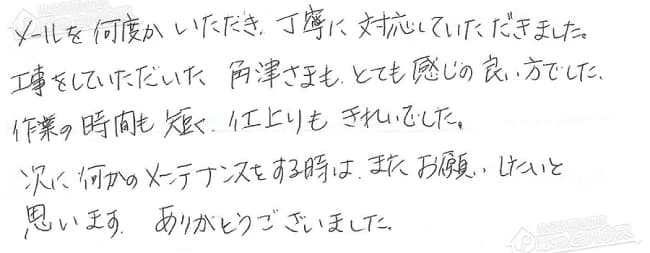 メールを何度かいただき、丁寧に対応していただきました。
工事をしていただいた 角津さまも、とても感じの良い方でした、
作業の時間も短く、仕上りもきれいでした。
次に何かのメーテナンスをする時は、またお願いしたいと
思います。ありがとうございました。